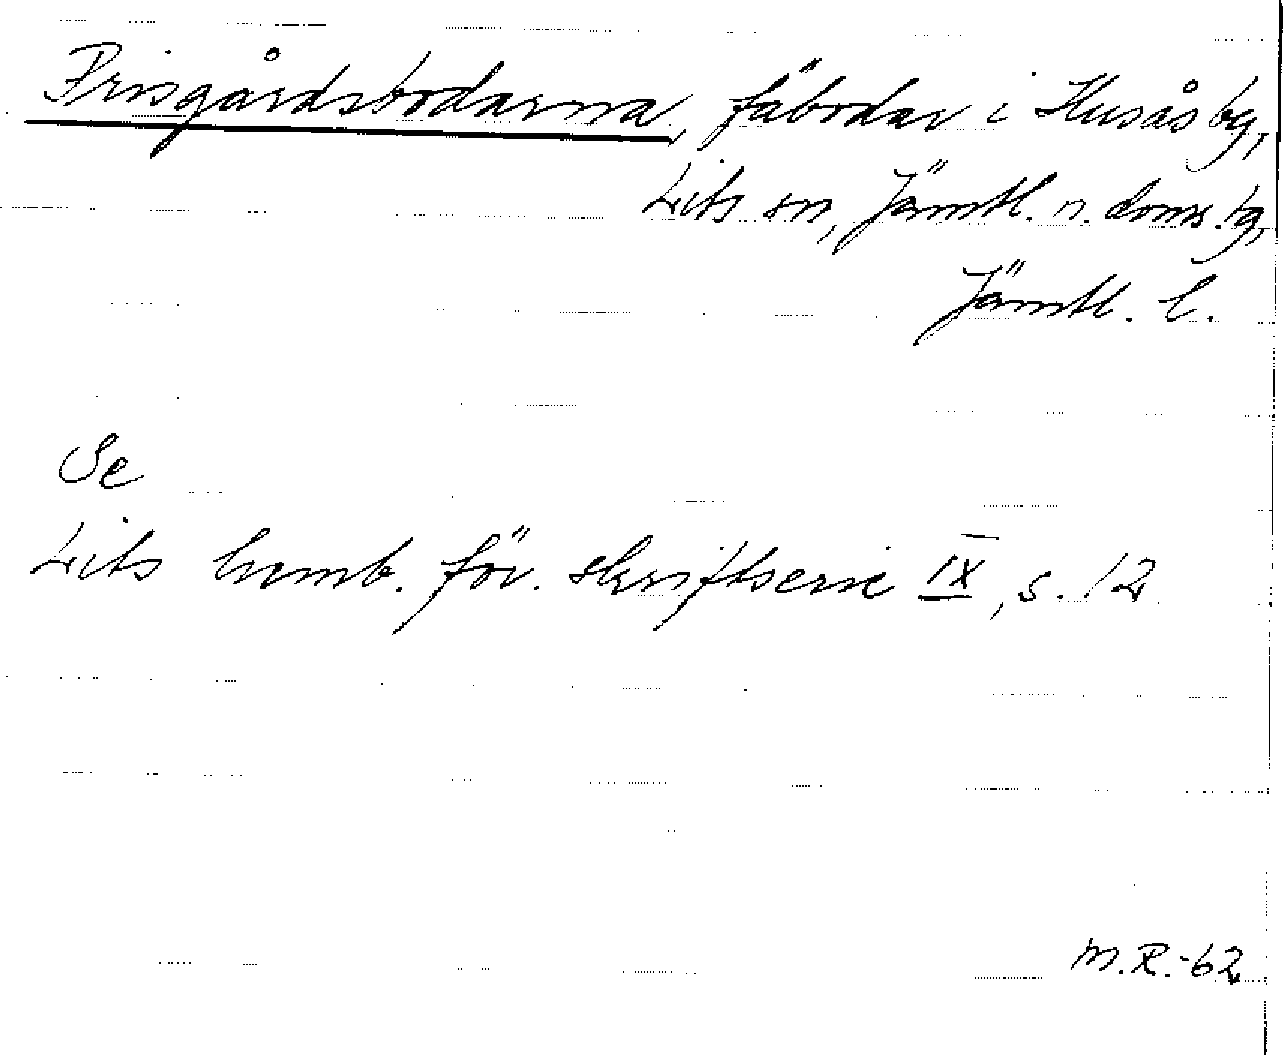 Prisgårdsbodarna, fäbodar i Husås by,
Lits sn, Jämtl. n. doms. tg,
Jämtl. l.
Se
Lits hemb. för. skriftserie IX, s. 12
M.R.-62